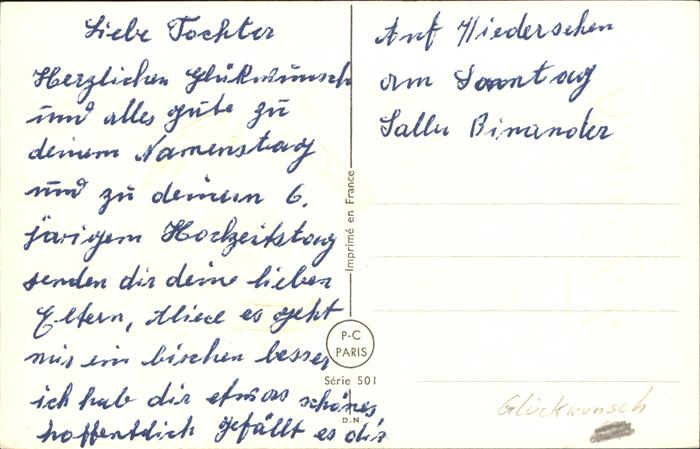 Liebe Tochter
Herzlichen Glükwunsch
und alles gute zu
deinem Namenstag
und zu deinem 6.
järigem Hochzeitstag
senden dir deine lieben
Eltern, Aliece es geht
mir ein bischen besser
ich hab dir etwas schönes
hoffentdich gefällt es dir
Auf Wiedersehen
am Sonntag
Sallu Binander
Imprimé en France
P-C
PARIS
Série 501
D.N.
Glückwunsch